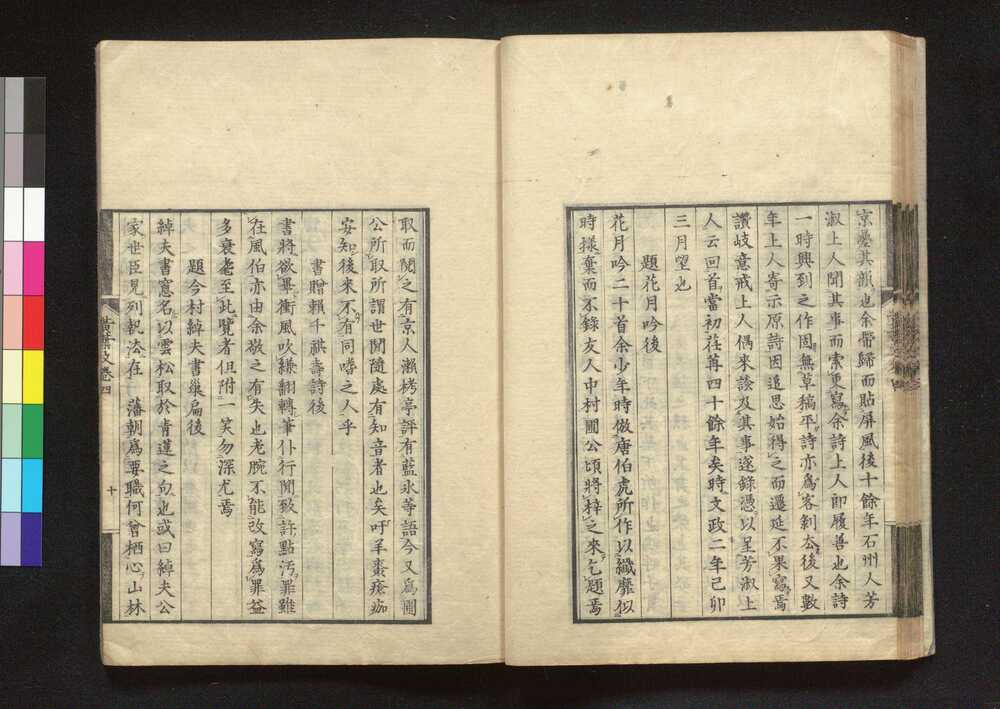 京臺其韻也余帶歸而貼屏風後十餘年石州人芳
淑上人聞其事而索更寫余詩上人卽履善也余詩
一時興到之作固無草稿平詩亦爲客剝太後又數
年上人寄示原詩因追思始得之而遷延不果寫焉
讚岐意戒上人偶來談及其事遂錄憑以呈芳淑上
人云回首當初荏苒四十餘年矣時文政二年己卯
三月望也
題花月吟後
花月吟二十首余少年時倣唐伯虎所作以纖靡似
時樣棄而不錄友人中村圃公頃將梓之來乞題焉
取而閱之有京人瀨栲亭評有藍氷等語今又爲圃
公所取所謂世閒隨處有知音者也矣吁羊棗瘡痂
安知後來不有同嗜之人乎
書贈賴千祺壽詩後
書將欲畢衝風吹縑翻轉筆仆行閒致許點汚罪雖
在風伯亦由余敬之有失也老腕不能改寫爲罪益
多衰耄至此覽者但附一笑勿深尤焉
題今村綽夫書巢扁後
綽夫書窓名以雲松取於靑蓮之句也或曰綽夫公
家世臣見列執法在 藩朝爲要職何曾栖心山林
黃葉文卷四
十